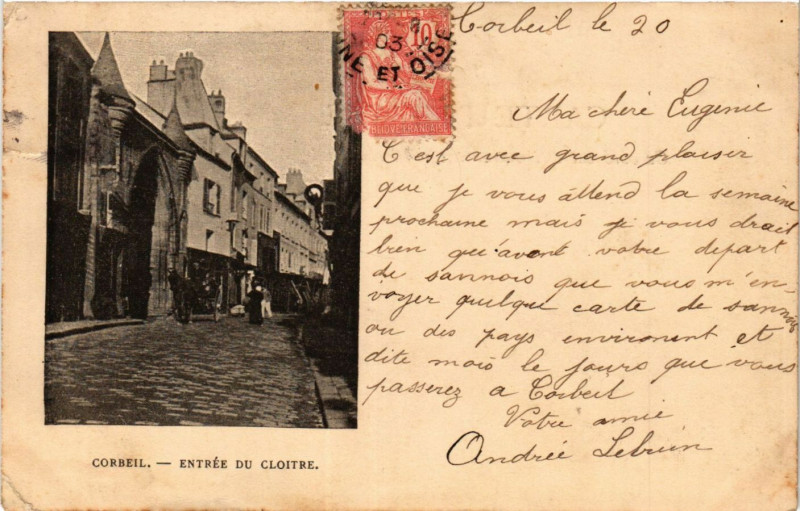 Corbeil le 20
POSTES
10
03
NE ET OISE
RÉPUBLIQUE FRANÇAISE
Ma chéré Eugenie
C'est avec grand plaisir
que je vous attend la semaine
prochaine mais je vous drait
bien qu'avant votre depart
de sannois que vous m'en-
voyer quelque carte de sannois
ou des pays environent et
dite mois le jours que vous
passerez a Corbeil
Votre amie
Andrée Lebrun
CORBEIL. — ENTRÉE DU CLOITRE.